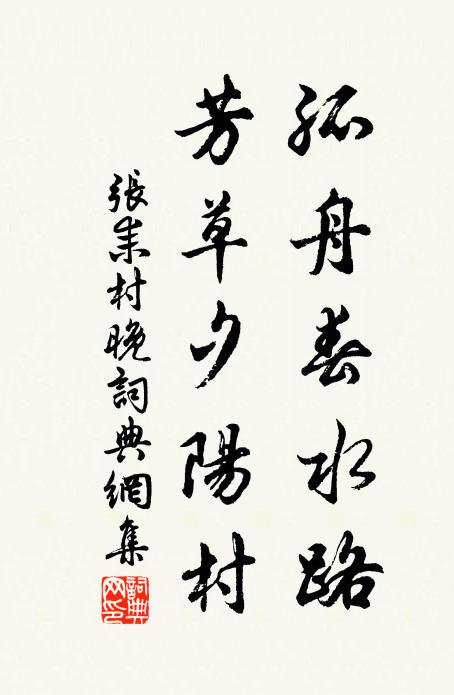 孤舟春水路
芳草夕陽村
張耒村晚詞典網集
詞典
网印